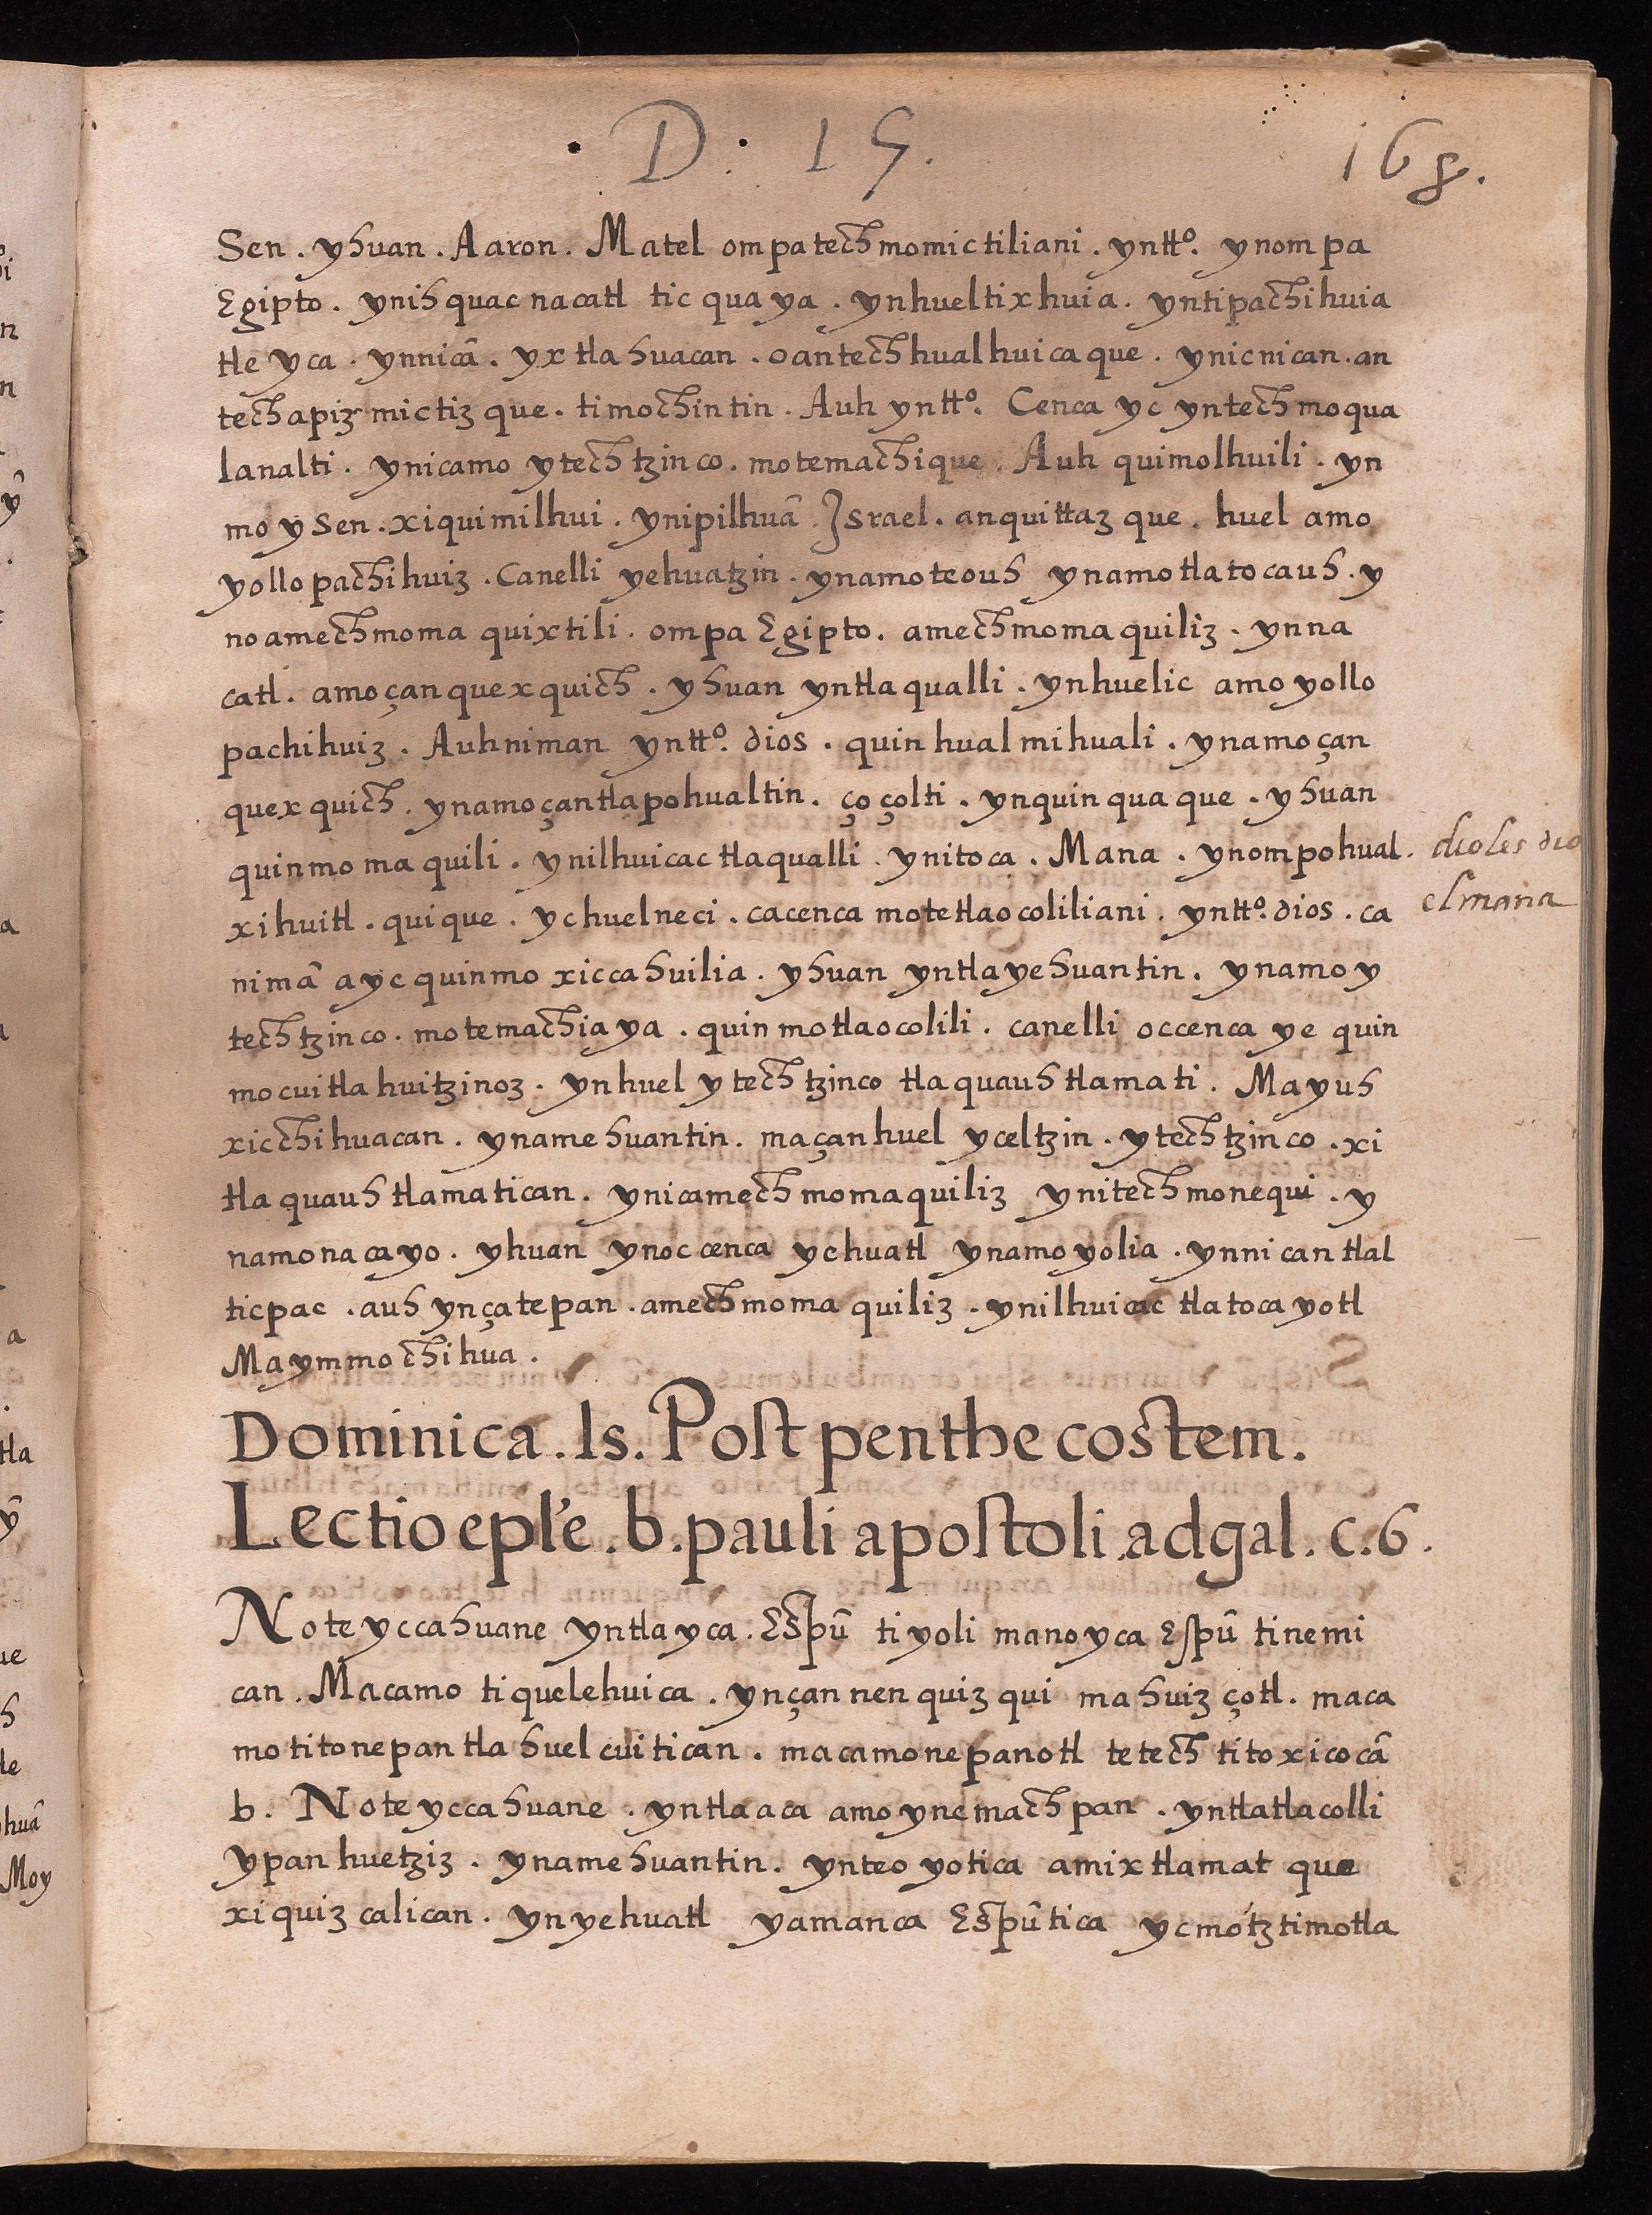 . D : 15.
168.
Sen . yhuan . Aaron . Matel ompatechmomictiliani . yntt⁰. ynompa
Egipto . ynihquac nacatl tic quaya . ynhueltixhuia . yntipachihuia
tle yca . ynnicā . yxtlahuacan . oantechhualhuicaque . ynicnican . an
techapizmictizque . timochintin . Auh yntt⁰. Cenca yc yntechmoqua
lanalti . ynicamo ytechtzinco . motemachique . Auh quimolhuili . yn
moysen . xiquimilhui . ynipilhuā . Israel . anquittazque . huel amo
yollopachihuiz . Canelli yehuatzin . ynamoteouh ynamotlatocauh . y
noamechmomaquixtili . ompa Egipto . amechmomaquiliz . ynna
catl . amoçanquexquich . yhuan yntlaqualli . ynhuelic amo yollo
pachihuiz . Auhniman yntt⁰. dios . quinhualmihuali . ynamoçan
quexquich . ynamoçantlapohualtin . çoçolti . ynquinquaque . yhuan
quinmomaquili . ynilhuicac tlaqualli . ynitoca . Mana . ynompohual .
xihuitl . quique . ychuelneci . cacenca motetlaocoliliani . yntt⁰. dios . ca
nimā ayc quinmoxiccahuilia . yhuan yntlayehuantin . ynamo y
techtzinco . motemachiaya . quinmotlaocolili . canelli occenca ye quin
mocuitlahuitzinoz . ynhuel ytechtzinco tlaquauhtlamati . Mayuh
xicchihuacan . ynamehuantin . maçanhuel yceltzin . ytechtzinco . xi
tlaquauhtlamatican . ynicamechmomaquiliz ynitechmonequi . y
namonacayo . yhuan ynoccenca yehuatl ynamoyolia . ynnican tlal
ticpac . auh ynçatepan . amechmomaquiliz . ynilhuicac tlatocayotl
Maymmochihua .
dioles dio
el mana
Dominica . 15 . Post penthecostem .
Lectio epl'e . b . pauli apostoli . ad gal . c . 6 .
Noteyccahuane yntlayca . Espū tiyoli manoyca Espū tinemi
can . Macamo tiquelehuica . ynçannenquizqui mahuizçotl . maca
motitonepantlahuelcuitican . macamonepanotl tetech titoxicocā
b . Noteyccahuane . yntlaaca amoynemachpan . yntlatlacolli
ypanhuetziz . ynamehuantin . ynteoyotica amixtlamatque
xiquizcalican . ynyehuatl yamanca Espūtica ycmótztimotla